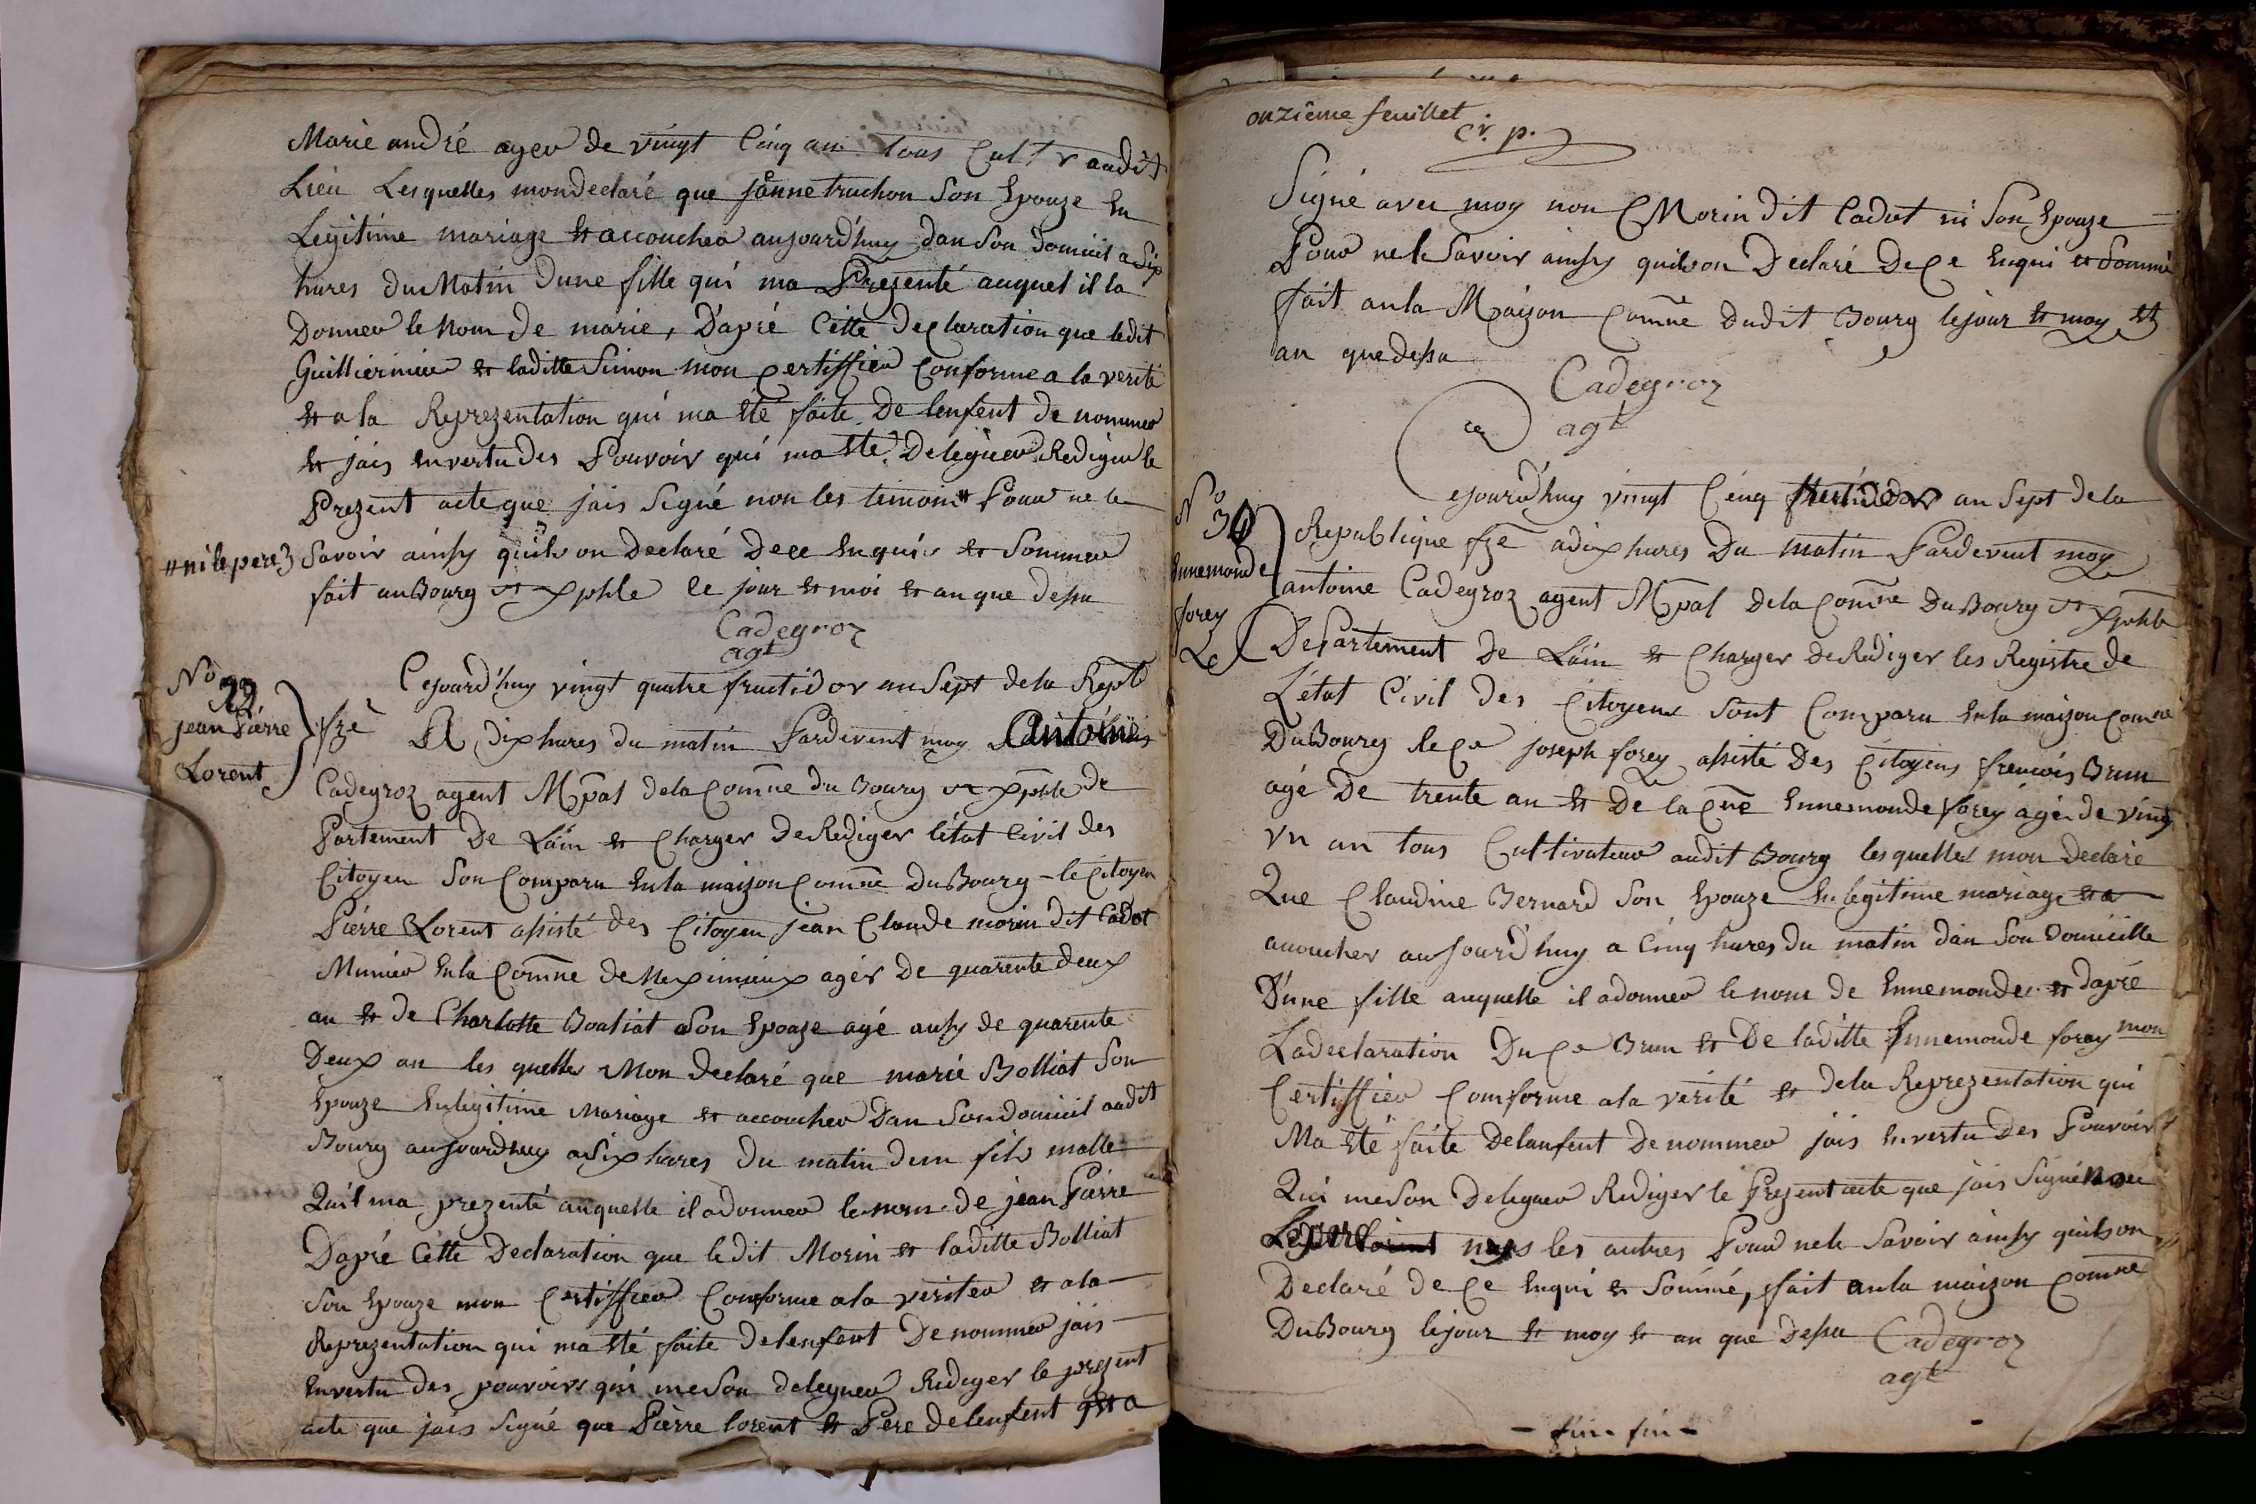 Marie andré agée de vingt Cinq an tous Cult.r audit
Lieu Lesquelles mondeclaré que janne truchon Son Epouze En
Legitime mariage Et accouchea aujourd'huy dan Son domicil a Six
hures Du Matin Dune fille qui ma Prezenté auquel il la
Donnea le Nom de marie, Dapré Cette declaration que ledit
Guilliermin Et laditte Simon mon Certiffiea Conforme a la verité
Et a la Reprezentation qui ma Eté faite De lenfent de nommea
Et jais Envertu des Pouvoir qui ma Eté Deleguea Redigea le
Prezent acte que jais Signé non les temoins # Pour ne le
#ni le perez Savoir ainsy quils on Declaré Dece Enquis Et Sommea
fait au Bourg St Xphle le jour Et moi Et an que Desu
Cadegroz
agt
No 29
jean Pierre
Lorent
Cejourd'huy vingt quatre fructidor an Sept de la Repb
fze A dix hures du matin Pardevent moy Antoine
Cadegroz agent Mpal dela Comne du Bourg St Xphle de
Partement De Lain Et Charger de Rediger l'état Civil des
Citoyen Son Comparu En la maizon Comne Du Bourg le Citoyen
Pierre Lorent assisté des Citoyen jean Claude morin dit Cadot
Munier En la Comne de Meximieux agér de quarente deux
an Et de Charlotte Boaliat Son Epouze agé ausy de quarente
Deux an les quelles Mon declaré que marie Bolliat Son
Epouze Enlegitime Mariage Et accouchea Dan Son domicil audit
Bourg aujourdhuy a Six hures Du matin dun fils malle
Quil ma prezenté auquelle il adonnea le nom de jean Pierre
Dapré Cette Declaration que ledit Morin Et laditte Bolliat
Son Epouze mon Certiffiea Conforme ala veritea Et ala
Reprezentation qui ma Eté faite delenfent De nommea jais
Envertu des pouvoirs qui me Son deleguea Rediger le prezent
acte que jais Signé que Pierre lorent Et Pere delenfent
onzième feuillet
C. p.
Signé avec moy non C Morin dit Cadot ni Son Epouze
Pour nele Savoir ainsy quilson Declaré Dece Enqui et Sommé
fait anla Maizon Comne Dudit Bourg lejour Et moy Et
an quedesu
Cadegroz
agt
No 30
Ennemonde
forey
Cejourd'huy vingt Cinq fructidor an Sept de la
Republique fze a dix hures Du matin Pardevent moy
antoine Cadegroz agent Mpal Dela Comne Du Bourg St Xphle
Departement De Lain Et Charger de Rediger les Registre de
L'état Civil des Citoyens Sont Comparu Enla maizon Comne
Du Bourg le Cn joseph forey assisté Des Citoyens frencois Brun
agé De trente an Et De la Cne Ennemonde forey agé de vingt
vn an tous Cultivateur audit Bourg lesquelles mon Declaré
Que Claudine Bernard Son Epouze Enlegitime mariage Et a
accoucher aujourd'huy a Cinq hures du matin dan Son Domicille
D'une fille auquelle il adonnea le nom de Ennemonde Et dapré
Ladeclaration Du Cn Brun Et De laditte Ennemonde forey mon
Certiffiea Comforme ala verité Et dela Reprezentation qui
Ma Eté faite Delanfent De nommea jais Envertu Des Pouvoir
Qui meSon Deleguea Rediger le Prezent acte que jais Signé
Lepere les autres Pour nele Savoir ainsy quilson
Declaré de Ce Enqui Et Sommé, fait anla maizon Comne
Du Bourg lejour Et moy Et an que Desu Cadegroz
agt
- fin - fin -